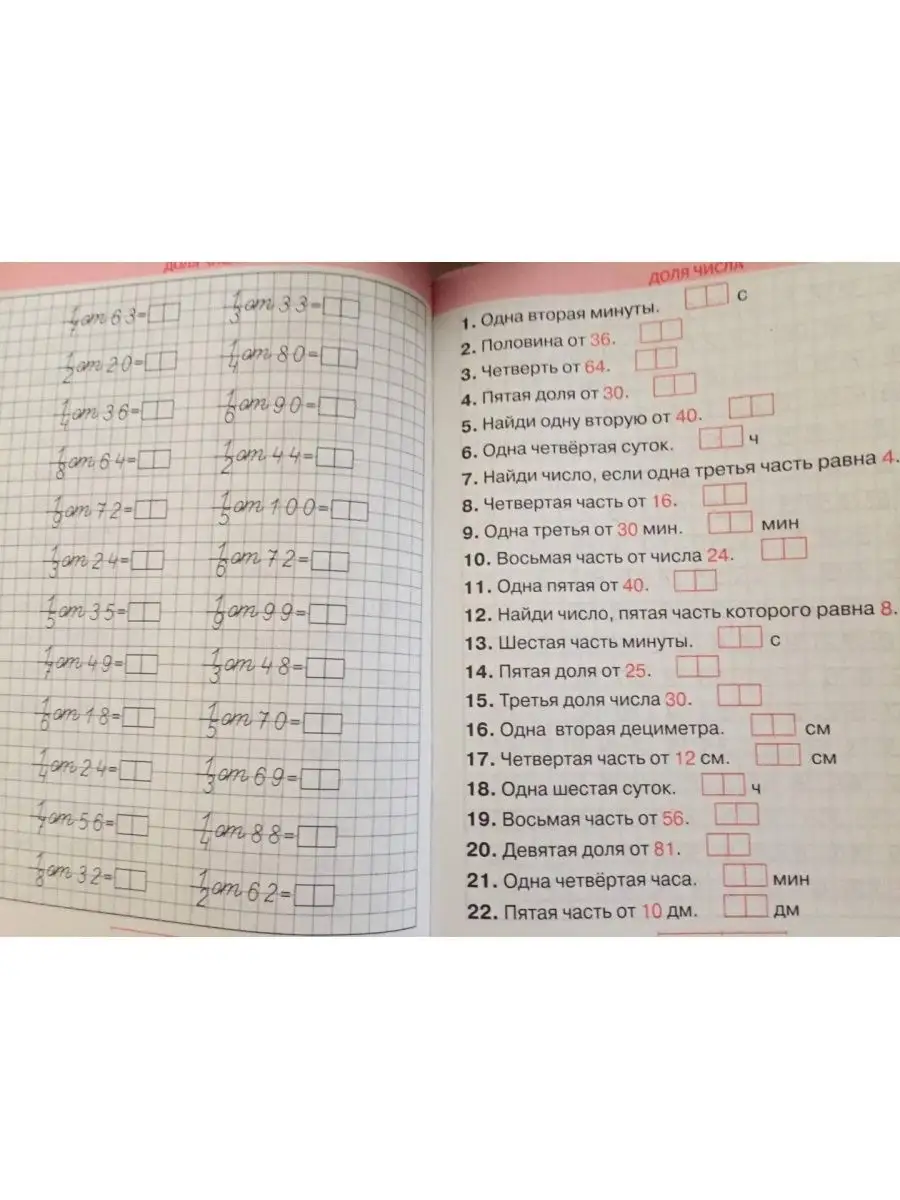 ДОЛЯ
1/7 от 63=
1/2 от 20=
1/4 от 36=
1/8 от 64=
1/9 от 72=
1/3 от 24=
1/5 от 35=
1/7 от 49=
1/6 от 18=
1/4 от 24=
1/7 от 56=
1/8 от 32=
1/3 от 33=
1/4 от 80=
1/6 от 90=
1/2 от 44=
1/5 от 100=
1/6 от 72=
1/9 от 99=
1/3 от 48=
1/5 от 70=
1/3 от 69=
1/4 от 88=
1/2 от 62=
ДОЛЯ ЧИСЛА
1. Одна вторая минуты. с
2. Половина от 36.
3. Четверть от 64.
4. Пятая доля от 30.
5. Найди одну вторую от 40.
6. Одна четвёртая суток. ч
7. Найди число, если одна третья часть равна 4.
8. Четвертая часть от 16.
9. Одна третья от 30 мин. мин
10. Восьмая часть от числа 24.
11. Одна пятая от 40.
12. Найди число, пятая часть которого равна 8.
13. Шестая часть минуты. с
14. Пятая доля от 25.
15. Третья доля числа 30.
16. Одна вторая дециметра. см
17. Четвертая часть от 12 см. см
18. Одна шестая суток. ч
19. Восьмая часть от 56.
20. Девятая доля от 81.
21. Одна четвёртая часа. мин
22. Пятая часть от 10 дм. дм